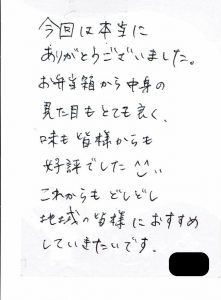 今回は本当に
ありがとうございました。
お弁当箱から中身の
見た目もとても良く、
味も皆様からも
好評でした^^
これからもどしどし
地域の皆様におすすめ
していきたいです.